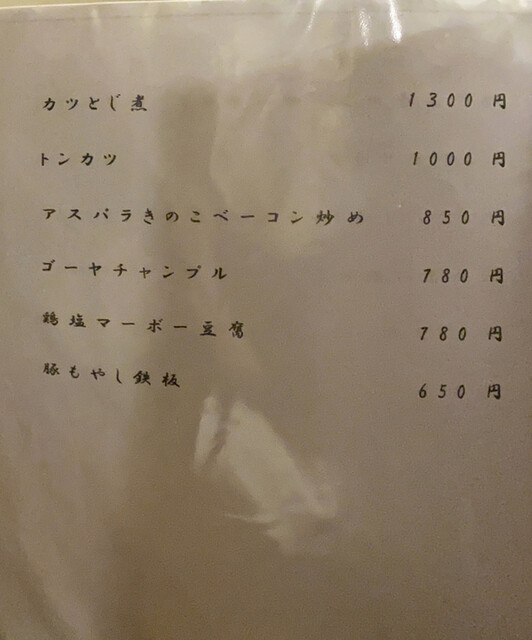 カツとじ煮 1300円
トンカツ 1000円
アスパラきのこベーコン炒め 850円
ゴーヤチャンプル 780円
鶏塩マーボー豆腐 780円
豚もやし鉄板 650円